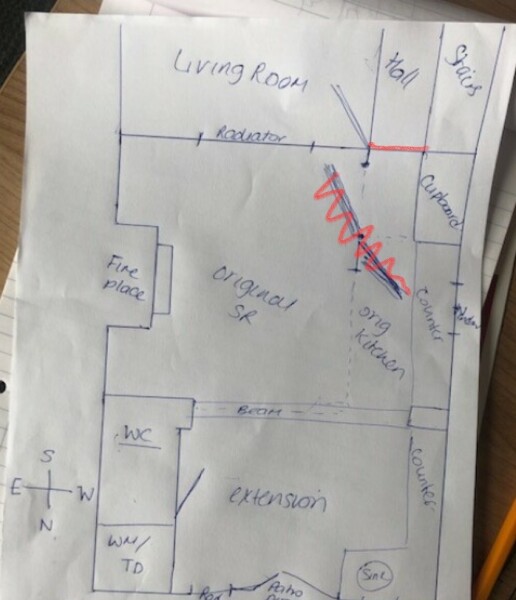 Living Room
Hall
Stairs
Radiator
Cupboard
Fire
place
original
SR
orig
Kitchen
Counter
Window
Beam
WC
S
E W
N
extension
Counter
WM/
TD
Sink
Patio